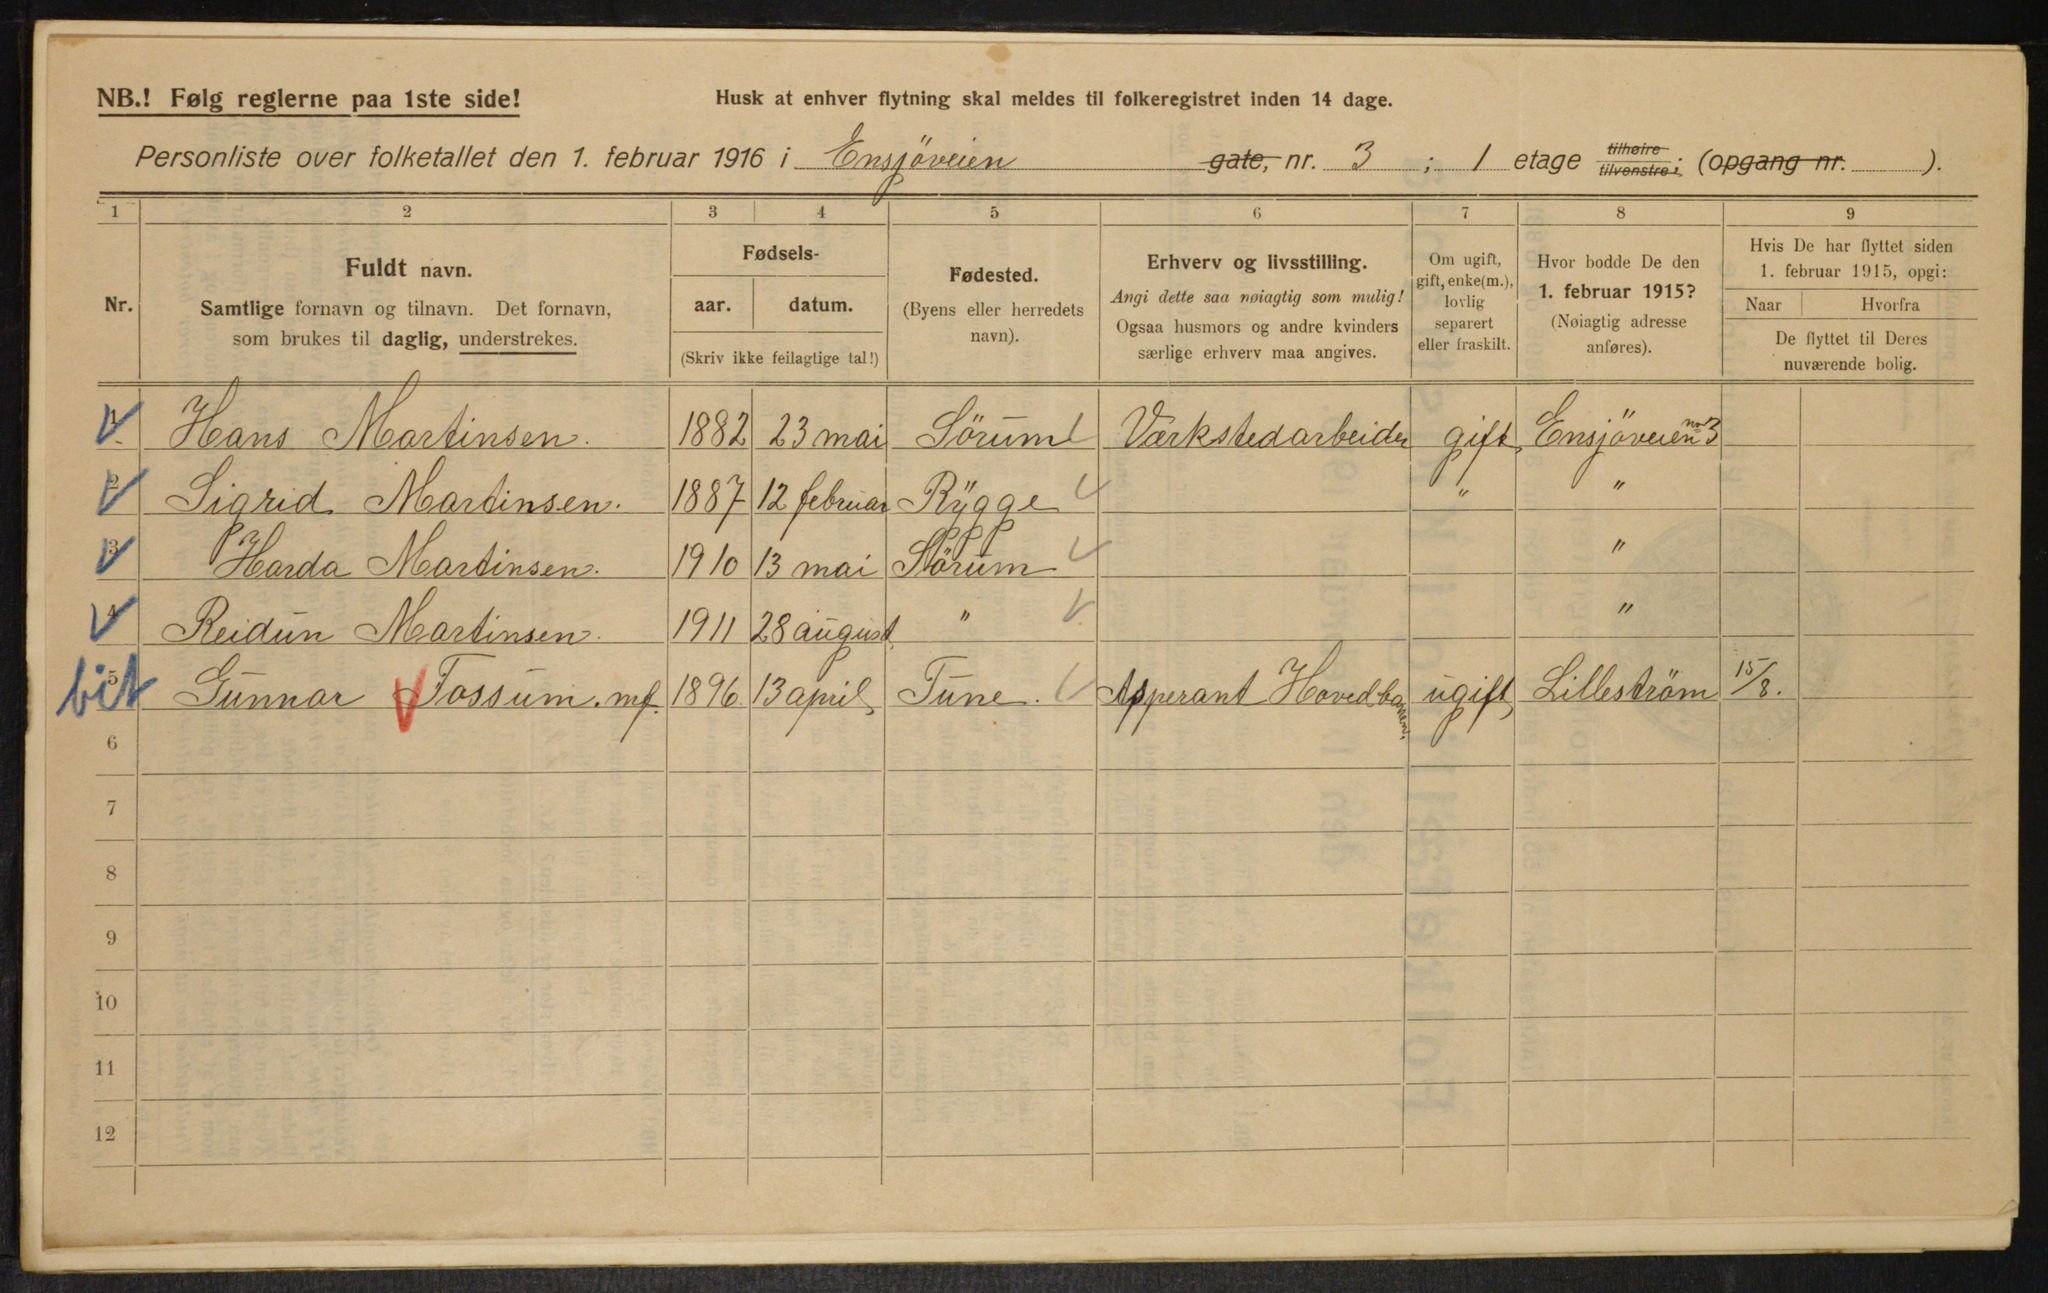 NB.! Følg reglerne paa 1ste side!
Husk at enhver flytning skal meldes til folkeregistret inden 14 dage.
Personliste over folketallet den 1. februar 1916 i Ensjöveien gate, nr. 3 ; 1 etage tilhøire tilvenstre; (opgang nr. ).
1 2 3 4 5 6 7 8 9
Nr.
Fuldt navn.
Samtlige fornavn og tilnavn. Det fornavn,
som brukes til daglig, understrekes.
Fødsels-
aar. datum.
(Skriv ikke feilagtige tal!)
Fødested.
(Byens eller herredets
navn).
Erhverv og livsstilling.
Angi dette saa nøiagtig som mulig!
Ogsaa husmors og andre kvinders
særlige erhverv maa angives.
Om ugift,
gift, enke(m.),
lovlig
separert
eller fraskilt.
Hvor bodde De den
1. februar 1915?
(Nøiagtig adresse
anføres).
Hvis De har flyttet siden
1. februar 1915, opgi:
Naar Hvorfra
De flyttet til Deres
nuværende bolig.
1 Hans Martinsen. 1882 23 mai Sörum Værkstedarbeider gift Ensjöveien no 3
2 Sigrid Martinsen. 1887 12 februar Rygge " "
3 Harda Martinsen. 1910 13 mai Sörum "
4 Reidun Martinsen. 1911 28 august " "
5 bit Gunnar Fossum. mf. 1896 13 april Tune. Asperant Hovedbanen. ugift Lilleström 15/8.
6
7
8
9
10
11
12